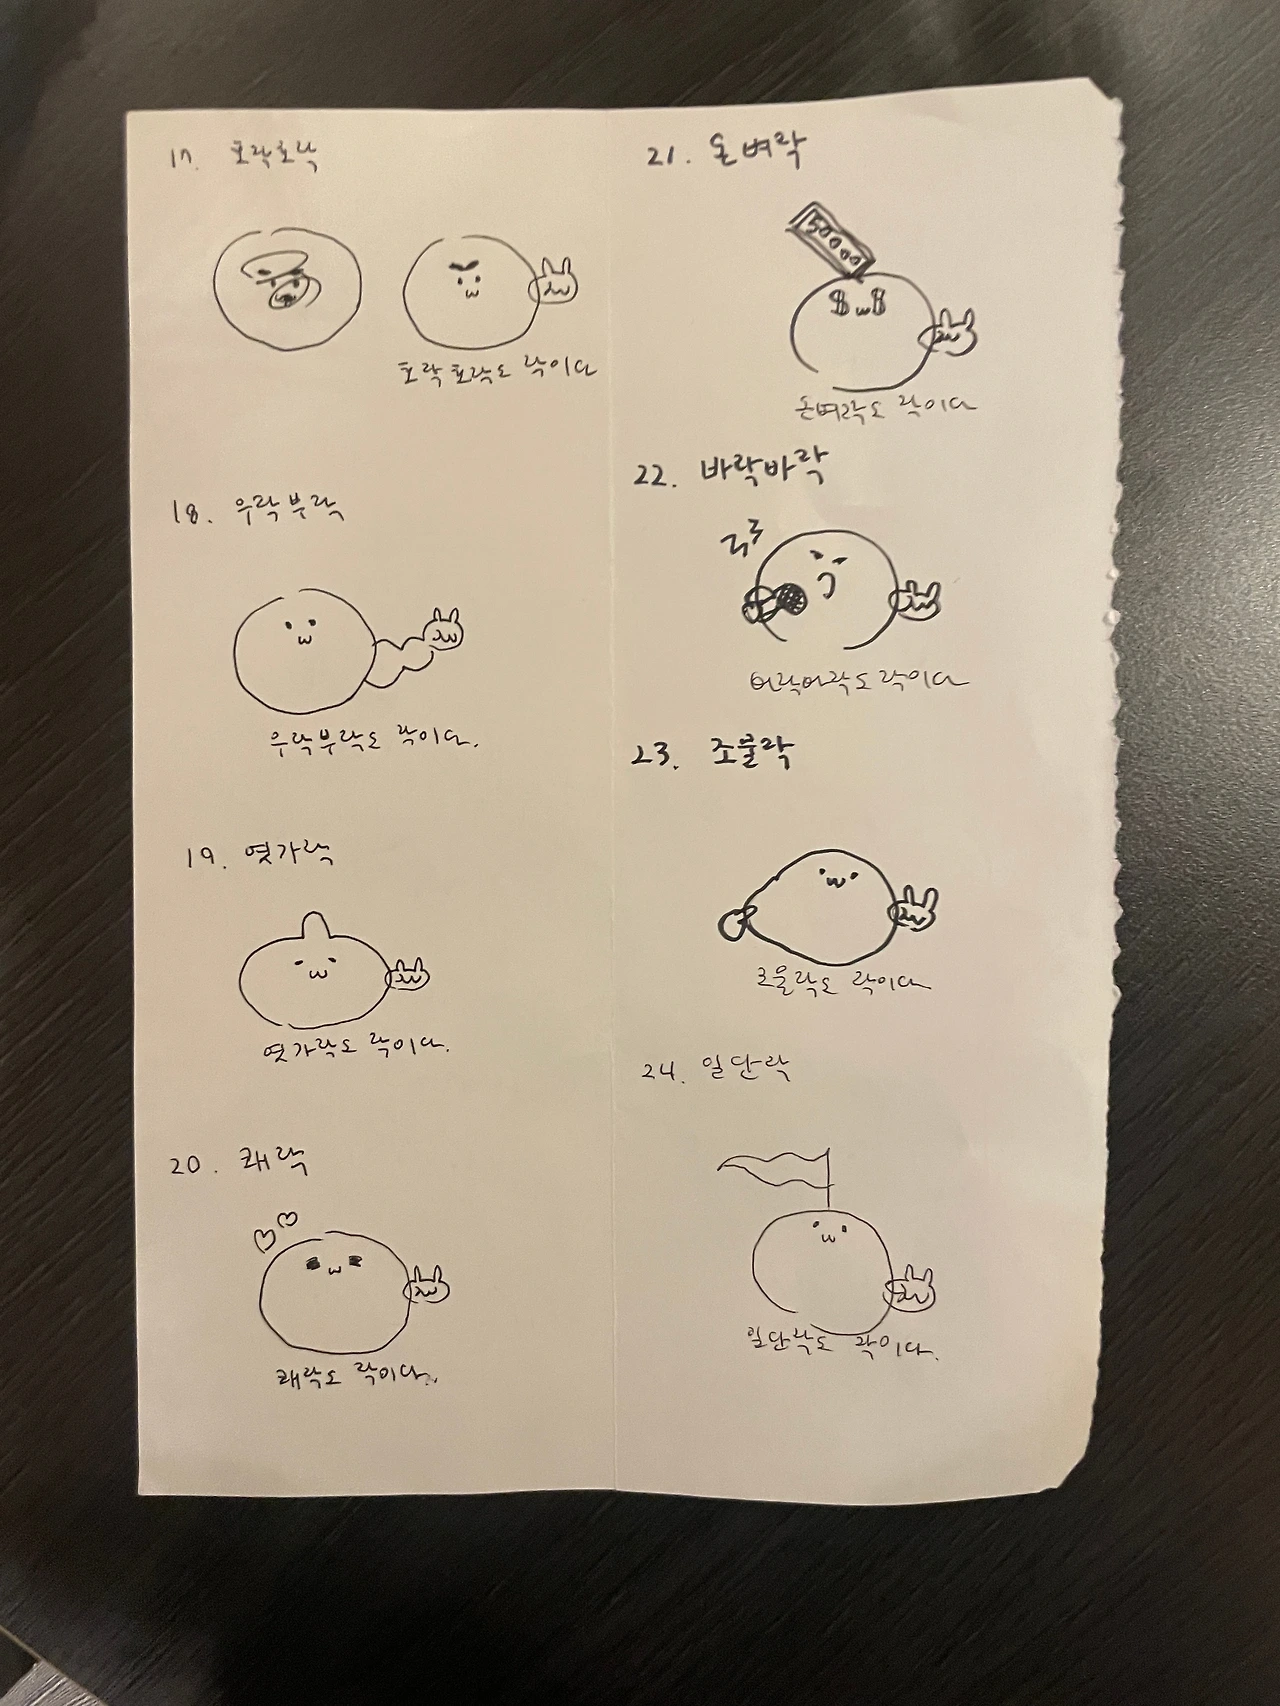 17. 호락호락
호락호락도 락이다
18. 우락부락
우락부락도 락이다.
19. 엿가락
엿가락도 락이다.
20. 쾌락
쾌락도 락이다.
21. 돈벼락
50000
$ w $
돈벼락도 락이다
22. 바락바락
바락바락도 락이다
23. 조물락
조물락도 락이다
24. 일단락
일단락도 락이다.